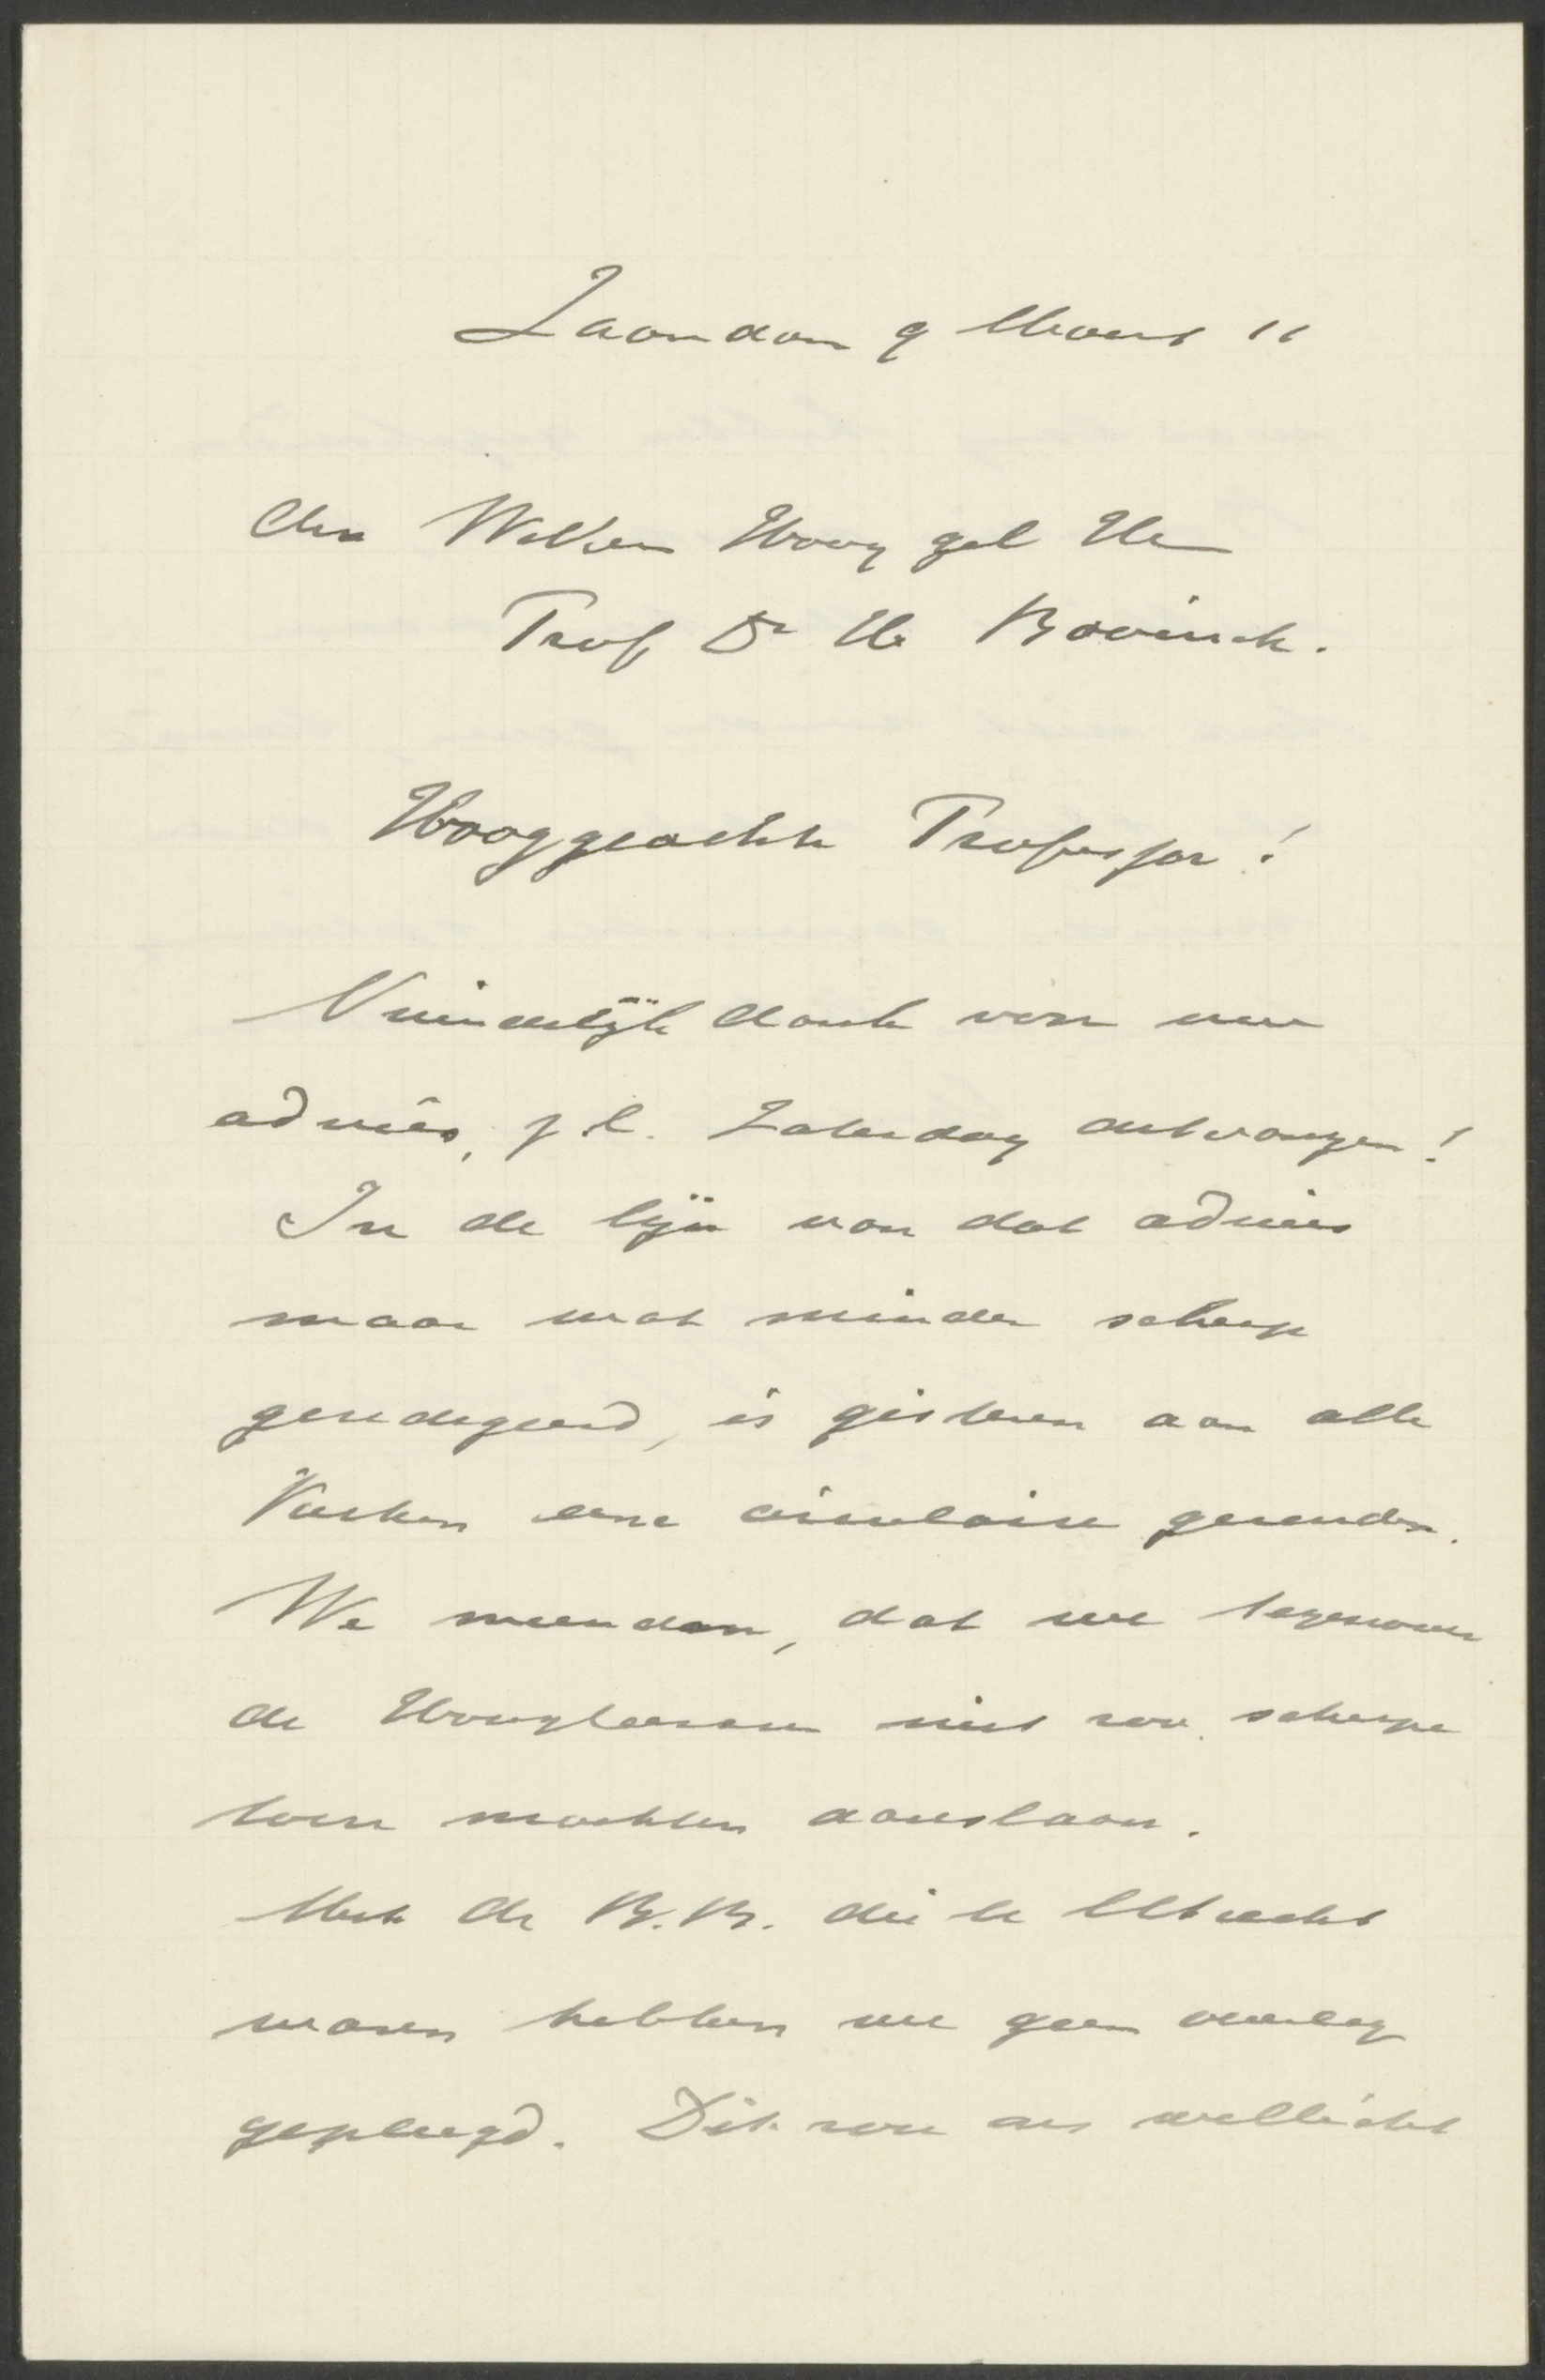 Zaandam 9 Maart 11
Den WelEerw Hoog gel Heer
Prof Dr H Bavinck.
Hooggeachte Professor!
Vriendelijk dank voor uw
advies, j.l. Zaterdag ontvangen!
In de lijn van dat advies
maar wat minder scherp
geredigeerd, is gisteren aan alle
Kerken eene circulaire gezonden.
We meenden, dat we tegenover
de Hoogleeraren niet zoo scherpe
toon mochten aanslaan.
Met de B.B. die te Utrecht
waren hebben we geen overleg
gepleegd. Dit zou ons wellicht